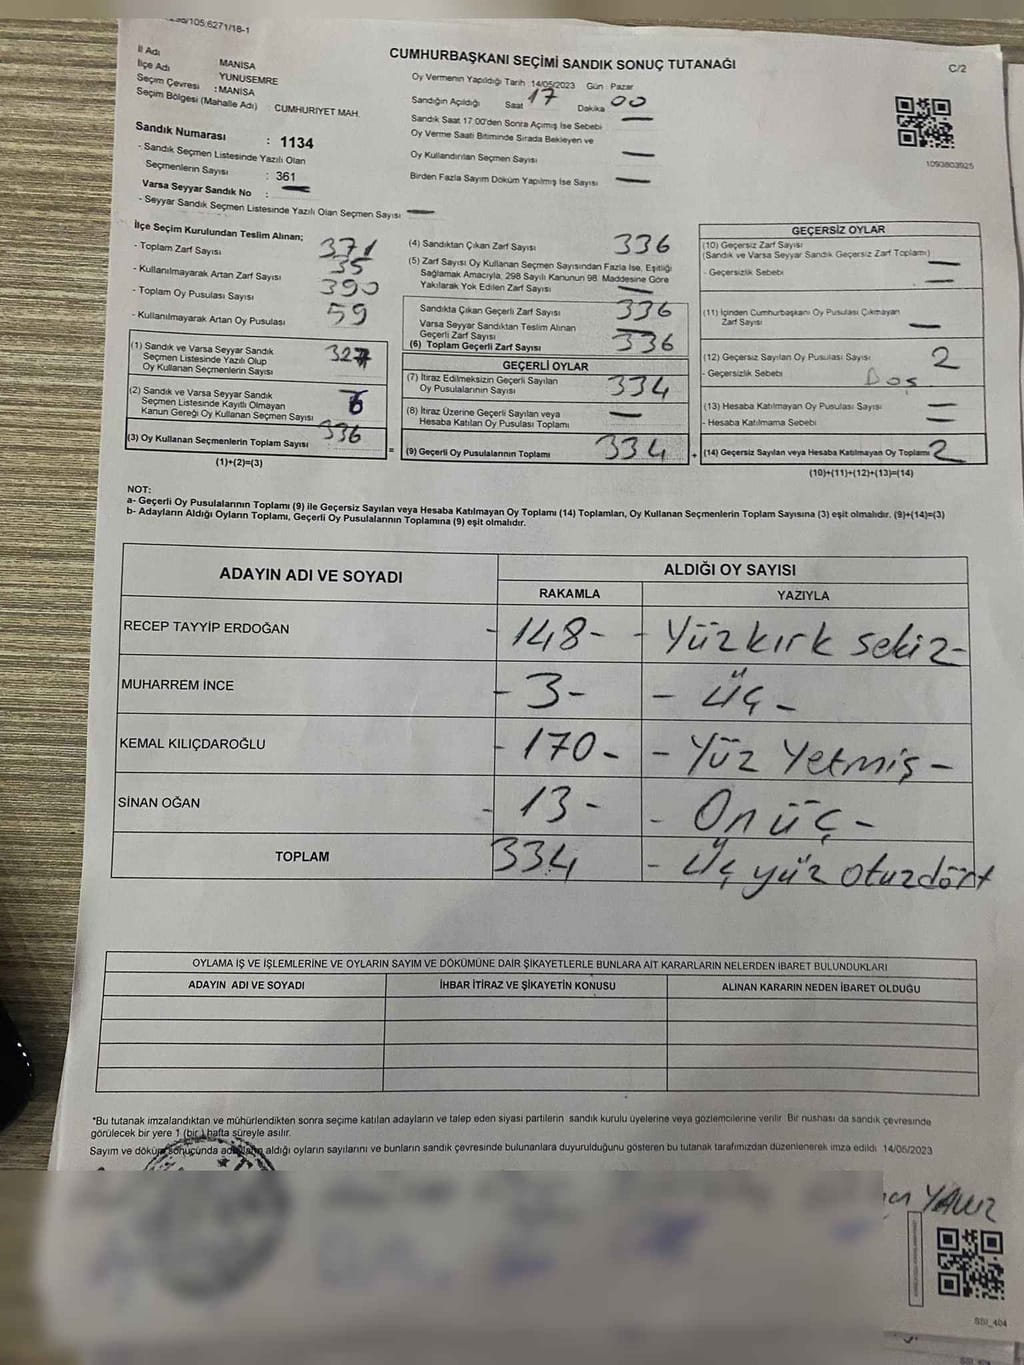 CUMHURBAŞKANI SEÇİMİ SANDIK SONUÇ TUTANAĞI
C/2
İl Adı MANİSA
İlçe Adı YUNUSEMRE
Seçim Çevresi : MANİSA
Seçim Bölgesi (Mahalle Adı) : CUMHURIYET MAH.
Oy Vermenin Yapıldığı Tarih 14/05/2023 Gün : Pazar
Sandığın Açıldığı Saat 17 Dakika 00
Sandık Saat 17:00'den Sonra Açımış İse Sebebi —
Oy Verme Saati Bitiminde Sırada Bekleyen ve
Oy Kullandırılan Seçmen Sayısı —
Birden Fazla Sayım Döküm Yapılmış İse Sayısı —
1093803925
Sandık Numarası : 1134
- Sandık Seçmen Listesinde Yazılı Olan
Seçmenlerin Sayısı : 361
Varsa Seyyar Sandık No : —
- Seyyar Sandık Seçmen Listesinde Yazılı Olan Seçmen Sayısı —
İlçe Seçim Kurulundan Teslim Alınan;
- Toplam Zarf Sayısı 371
- Kullanılmayarak Artan Zarf Sayısı 35
- Toplam Oy Pusulası Sayısı 390
- Kullanılmayarak Artan Oy Pusulası 59
(1) Sandık ve Varsa Seyyar Sandık
Seçmen Listesinde Yazılı Olup
Oy Kullanan Seçmenlerin Sayısı
(2) Sandık ve Varsa Seyyar Sandık
Seçmen Listesinde Kayıtlı Olmayan
Kanun Gereği Oy Kullanan Seçmen Sayısı
(3) Oy Kullanan Seçmenlerin Toplam Sayısı 336
(1)+(2)=(3)
(4) Sandıktan Çıkan Zarf Sayısı 336
(5) Zarf Sayısı Oy Kullanan Seçmen Sayısından Fazla İse, Eşitliği
Sağlamak Amacıyla, 298 Sayılı Kanunun 98. Maddesine Göre
Yakılarak Yok Edilen Zarf Sayısı —
Sandıkta Çıkan Geçerli Zarf Sayısı 336
Varsa Seyyar Sandıktan Teslim Alınan
Geçerli Zarf Sayısı —
(6) Toplam Geçerli Zarf Sayısı 336
GEÇERLİ OYLAR
(7) İtiraz Edilmeksizin Geçerli Sayılan
Oy Pusulalarının Sayısı 334
(8) İtiraz Üzerine Geçerli Sayılan veya
Hesaba Katılan Oy Pusulası Toplamı —
= (9) Geçerli Oy Pusulalarının Toplamı 334 +
GEÇERSİZ OYLAR
(10) Geçersiz Zarf Sayısı
(Sandık ve Varsa Seyyar Sandık Geçersiz Zarf Toplamı) —
- Geçersizlik Sebebi —
(11) İçinden Cumhurbaşkanı Oy Pusulası Çıkmayan
Zarf Sayısı —
(12) Geçersiz Sayılan Oy Pusulası Sayısı 2
- Geçersizlik Sebebi Boş
(13) Hesaba Katılmayan Oy Pusulası Sayısı —
- Hesaba Katılmama Sebebi —
(14) Geçersiz Sayılan veya Hesaba Katılmayan Oy Toplamı 2
(10)+(11)+(12)+(13)=(14)
NOT:
a- Geçerli Oy Pusulalarının Toplamı (9) ile Geçersiz Sayılan veya Hesaba Katılmayan Oy Toplamı (14) Toplamları, Oy Kullanan Seçmenlerin Toplam Sayısına (3) eşit olmalıdır. (9)+(14)=(3)
b- Adayların Aldığı Oyların Toplamı, Geçerli Oy Pusulalarının Toplamına (9) eşit olmalıdır.
ADAYIN ADI VE SOYADI ALDIĞI OY SAYISI
RAKAMLA YAZIYLA
RECEP TAYYİP ERDOĞAN - 148 - - Yüzkırk sekiz -
MUHARREM İNCE - 3 - - Üç -
KEMAL KILIÇDAROĞLU - 170 - - Yüz Yetmiş -
SİNAN OĞAN - 13 - - On üç -
TOPLAM 334 - Üç yüz otuzdört
OYLAMA İŞ VE İŞLEMLERİNE VE OYLARIN SAYIM VE DÖKÜMÜNE DAİR ŞİKAYETLERLE BUNLARA AİT KARARLARIN NELERDEN İBARET BULUNDUKLARI
ADAYIN ADI VE SOYADI İHBAR İTİRAZ VE ŞİKAYETİN KONUSU ALINAN KARARIN NEDEN İBARET OLDUĞU
*Bu tutanak imzalandıktan ve mühürlendikten sonra seçime katılan adayların ve talep eden siyasi partilerin sandık kurulu üyelerine veya gözlemcilerine verilir. Bir nüshası da sandık çevresinde
görülecek bir yere 1 (bir ) hafta süreyle asılır.
Sayım ve döküm sonucunda adayların aldığı oyların sayılarını ve bunların sandık çevresinde bulunanlara duyurulduğunu gösteren bu tutanak tarafımızdan düzenlenerek imza edildi. 14/05/2023
SSI_404